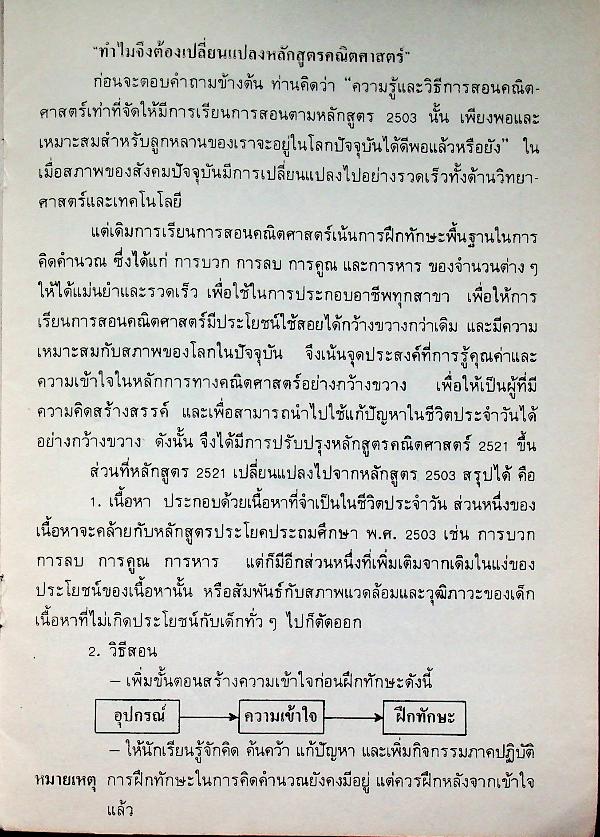 "ทำไมจึงต้องเปลี่ยนแปลงหลักสูตรคณิตศาสตร์"
ก่อนจะตอบคำถามข้างต้น ท่านคิดว่า "ความรู้และวิธีการสอนคณิต-
ศาสตร์เท่าที่จัดให้มีการเรียนการสอนตามหลักสูตร 2503 นั้น เพียงพอและ
เหมาะสมสำหรับลูกหลานของเราจะอยู่ในโลกปัจจุบันได้ดีพอแล้วหรือยัง" ใน
เมื่อสภาพของสังคมปัจจุบันมีการเปลี่ยนแปลงไปอย่างรวดเร็วทั้งด้านวิทยา-
ศาสตร์และเทคโนโลยี
แต่เดิมการเรียนการสอนคณิตศาสตร์เน้นการฝึกทักษะพื้นฐานในการ
คิดคำนวณ ซึ่งได้แก่ การบวก การลบ การคูณ และการหาร ของจำนวนต่าง ๆ
ให้ได้แม่นยำและรวดเร็ว เพื่อใช้ในการประกอบอาชีพทุกสาขา เพื่อให้การ
เรียนการสอนคณิตศาสตร์มีประโยชน์ใช้สอยได้กว้างขวางกว่าเดิม และมีความ
เหมาะสมกับสภาพของโลกในปัจจุบัน จึงเน้นจุดประสงค์ที่การรู้คุณค่าและ
ความเข้าใจในหลักการทางคณิตศาสตร์อย่างกว้างขวาง เพื่อให้เป็นผู้ที่มี
ความคิดสร้างสรรค์ และเพื่อสามารถนำไปใช้แก้ปัญหาในชีวิตประจำวันได้
อย่างกว้างขวาง ดังนั้น จึงได้มีการปรับปรุงหลักสูตรคณิตศาสตร์ 2521 ขึ้น
ส่วนที่หลักสูตร 2521 เปลี่ยนแปลงไปจากหลักสูตร 2503 สรุปได้ คือ
1. เนื้อหา ประกอบด้วยเนื้อหาที่จำเป็นในชีวิตประจำวัน ส่วนหนึ่งของ
เนื้อหาจะคล้ายกับหลักสูตรประโยคประถมศึกษา พ.ศ. 2503 เช่น การบวก
การลบ การคูณ การหาร แต่ก็มีอีกส่วนหนึ่งที่เพิ่มเติมจากเดิมในแง่ของ
ประโยชน์ของเนื้อหานั้น หรือสัมพันธ์กับสภาพแวดล้อมและวุฒิภาวะของเด็ก
เนื้อหาที่ไม่เกิดประโยชน์กับเด็กทั่ว ๆ ไปก็ตัดออก
2. วิธีสอน
– เพิ่มขั้นตอนสร้างความเข้าใจก่อนฝึกทักษะดังนี้
อุปกรณ์ ความเข้าใจ ฝึกทักษะ
– ให้นักเรียนรู้จักคิด ค้นคว้า แก้ปัญหา และเพิ่มกิจกรรมภาคปฏิบัติ
หมายเหตุ การฝึกทักษะในการคิดคำนวณยังคงมีอยู่ แต่ควรฝึกหลังจากเข้าใจ
แล้ว